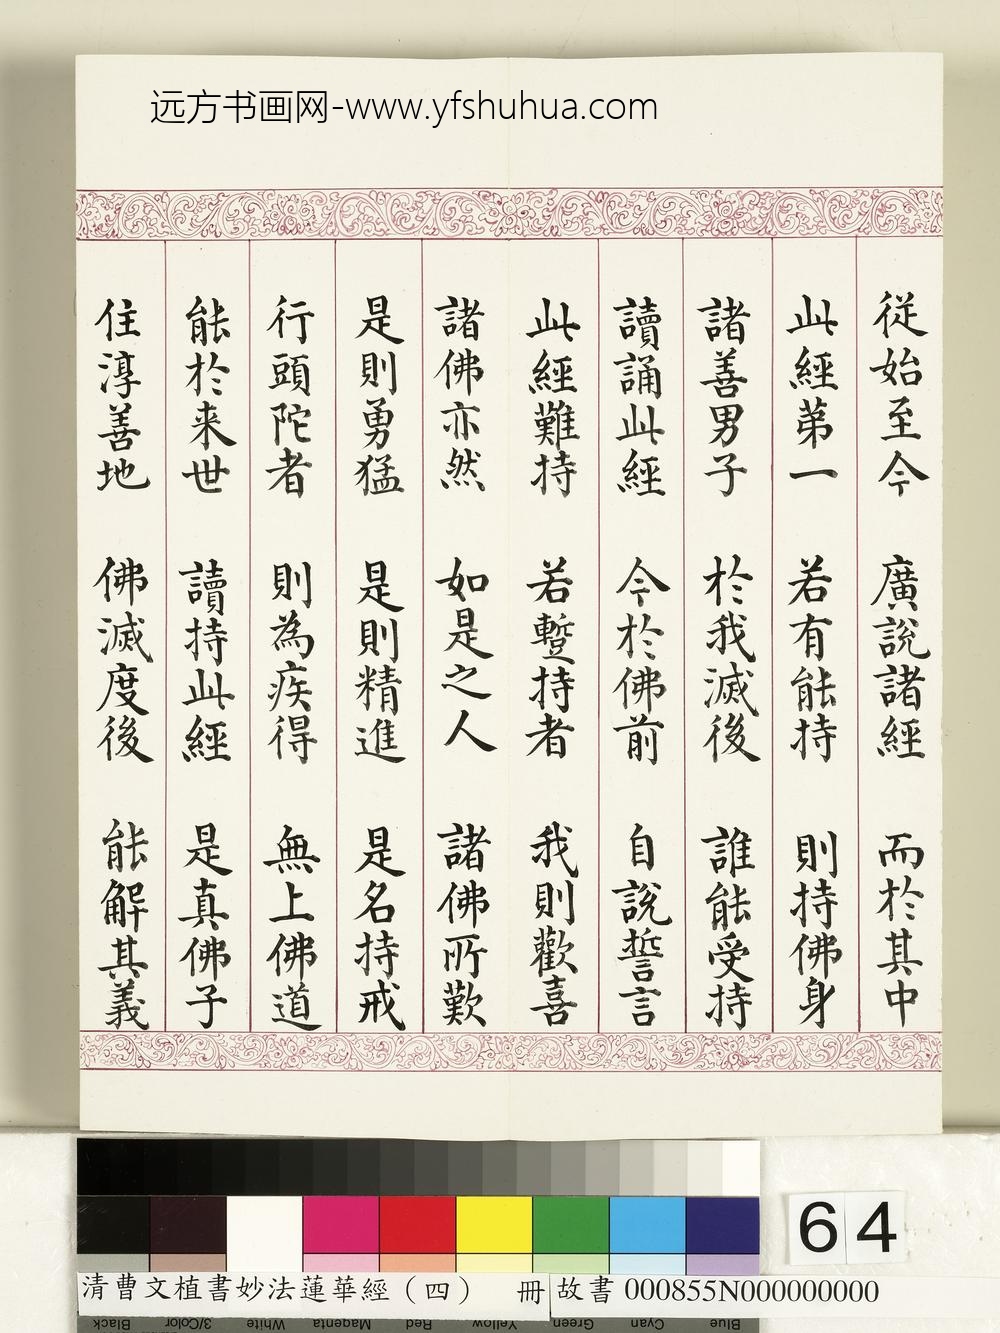 远方书画网-www.yfshuhua.com
從始至今 廣說諸經 而於其中
此經第一 若有能持 則持佛身
諸善男子 於我滅後 誰能受持
讀誦此經 今於佛前 自說誓言
此經難持 若蹔持者 我則歡喜
諸佛亦然 如是之人 諸佛所歎
是則勇猛 是則精進 是名持戒
行頭陀者 則為疾得 無上佛道
能於来世 讀持此經 是真佛子
住淳善地 佛滅度後 能解其義
64
清曹文植書妙法蓮華經（四） 冊 故書 000855N000000000
Black 3/Color White Magenta Red Yellow Green Cyan Blue